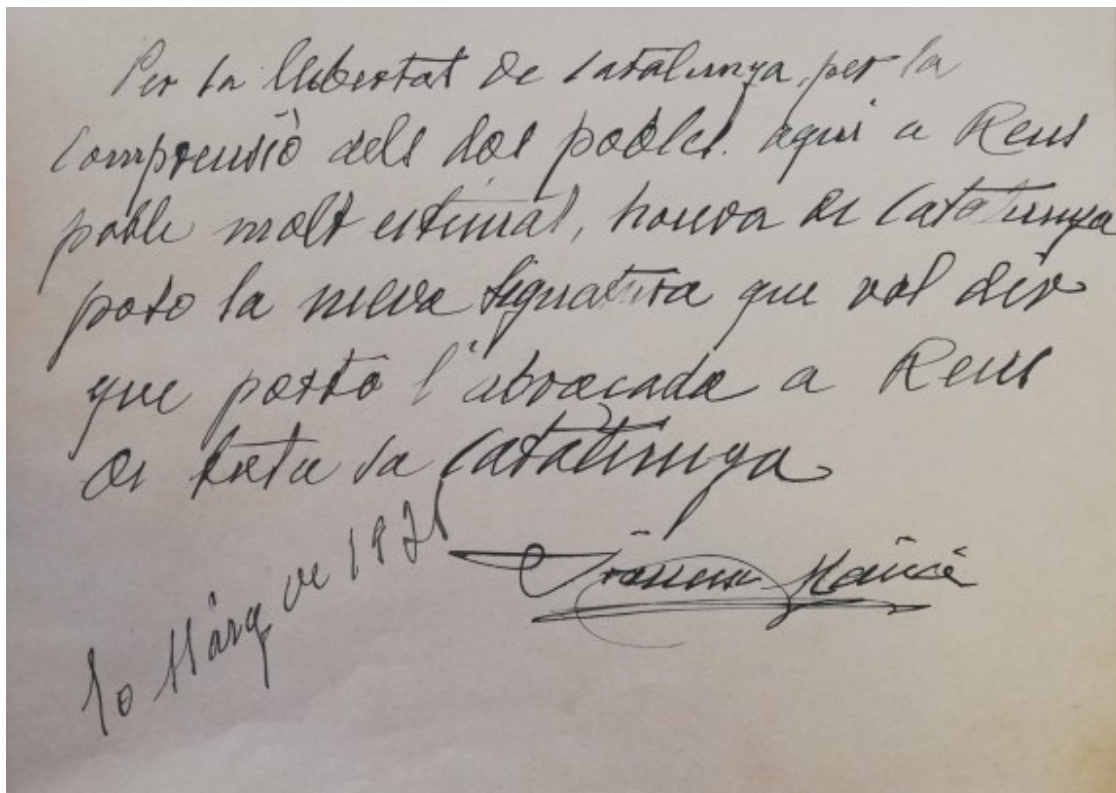 Per la llibertat de Catalunya, per la
comprensió dels dos pobles. aquí a Reus
poble molt estimat, honra de Catalunya
poso la meva signatura que vol dir
que porto l'abraçada a Reus
de tota la Catalunya
Francesc Macià
10 Març de 1931